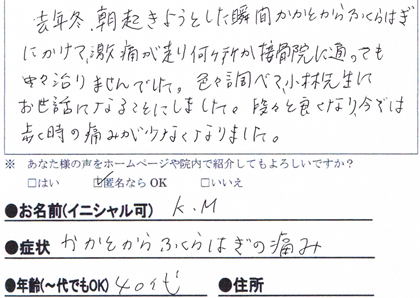 去年冬、朝起きようとした瞬間かかとからふくらはぎ
にかけて、激痛が走り何ヶ所か接骨院に通っても
中々治りませんでした。色々調べて、小林先生に
お世話になることにしました。段々と良くなり、今では
歩く時の痛みが少なくなりました。
※ あなた様の声をホームページや院内で紹介してもよろしいですか？
□はい ☑匿名ならOK □いいえ
●お名前(イニシャル可) K.M
●症状 かかとからふくらはぎの痛み
●年齢(～代でもOK) 40代 ●住所